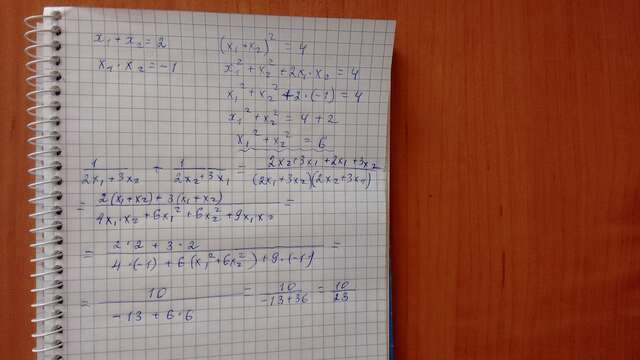 x₁ + x₂ = 2
x₁ · x₂ = -1
(x₁ + x₂)² = 4
x₁² + x₂² + 2x₁ · x₂ = 4
x₁² + x₂² + 2 · (-1) = 4
x₁² + x₂² = 4 + 2
x₁² + x₂² = 6
1/(2x₁ + 3x₂) + 1/(2x₂ + 3x₁) = (2x₂ + 3x₁ + 2x₁ + 3x₂)/((2x₁ + 3x₂)(2x₂ + 3x₁)) =
= (2(x₁ + x₂) + 3(x₁ + x₂))/(4x₁ · x₂ + 6x₁² + 6x₂² + 9x₁x₂) =
= (2 · 2 + 3 · 2)/(4 · (-1) + 6(x₁² + 6x₂²) + 9 · (-1)) =
= 10/(-13 + 6 · 6) = 10/(-13 + 36) = 10/23